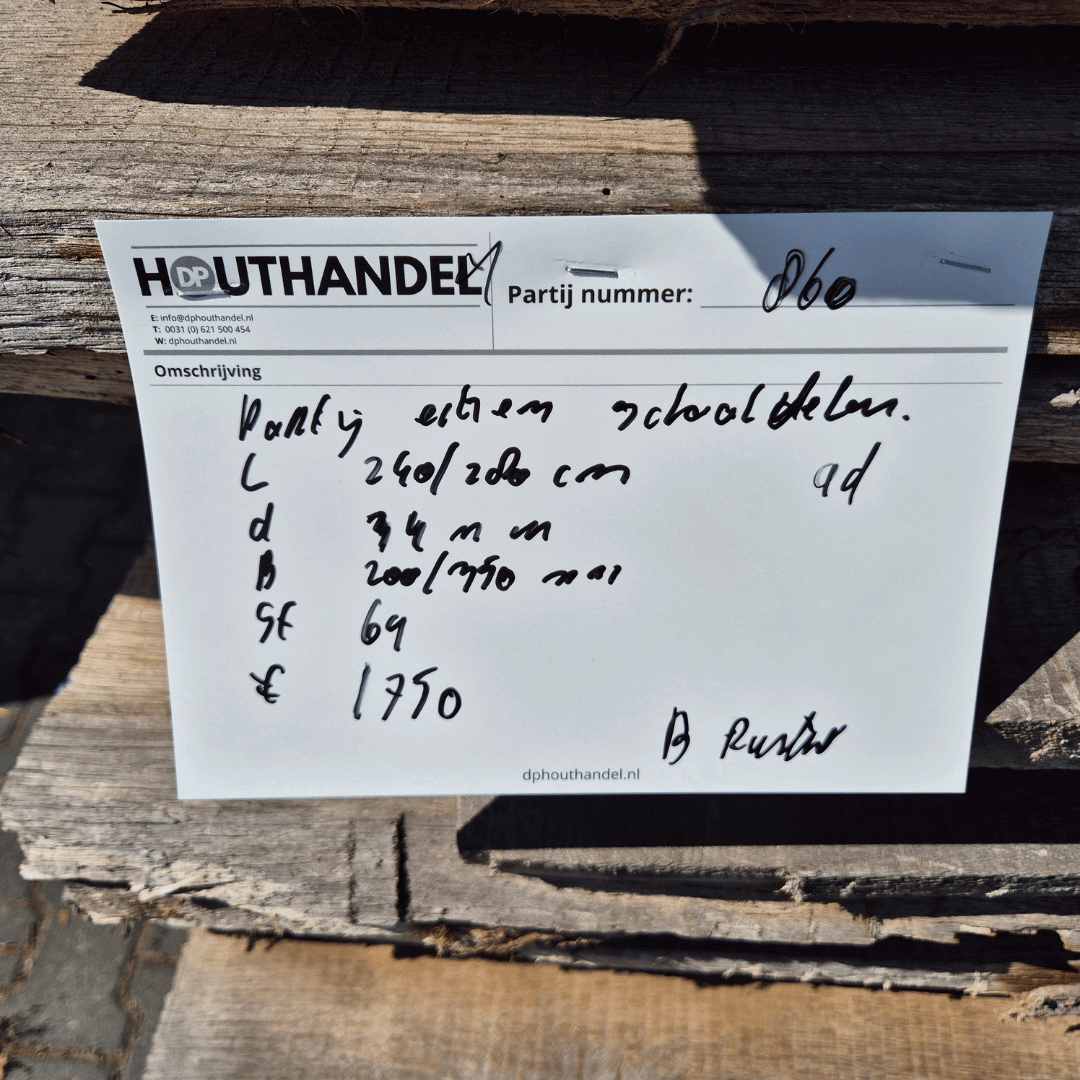 HOUTHANDEL
DP
E: info@dphouthandel.nl
T: 0031 (0) 621 500 454
W: dphouthandel.nl
Partij nummer: 860
Omschrijving
Partij eiken schaaldelen.
L 240/280 cm ad
d 34 mm
B 200/350 mm
St 69
€ 1750
B
dphouthandel.nl